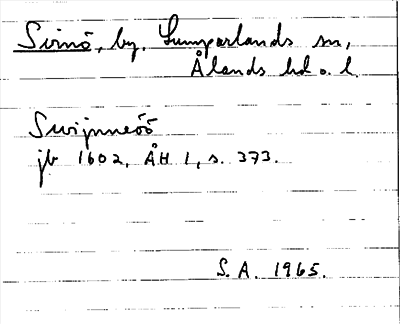 Svinö, by, Lumparlands sn,
Ålands hd o. l.
Swijnneöö
jb 1602, ÅH 1, s. 373.
S.A. 1965.